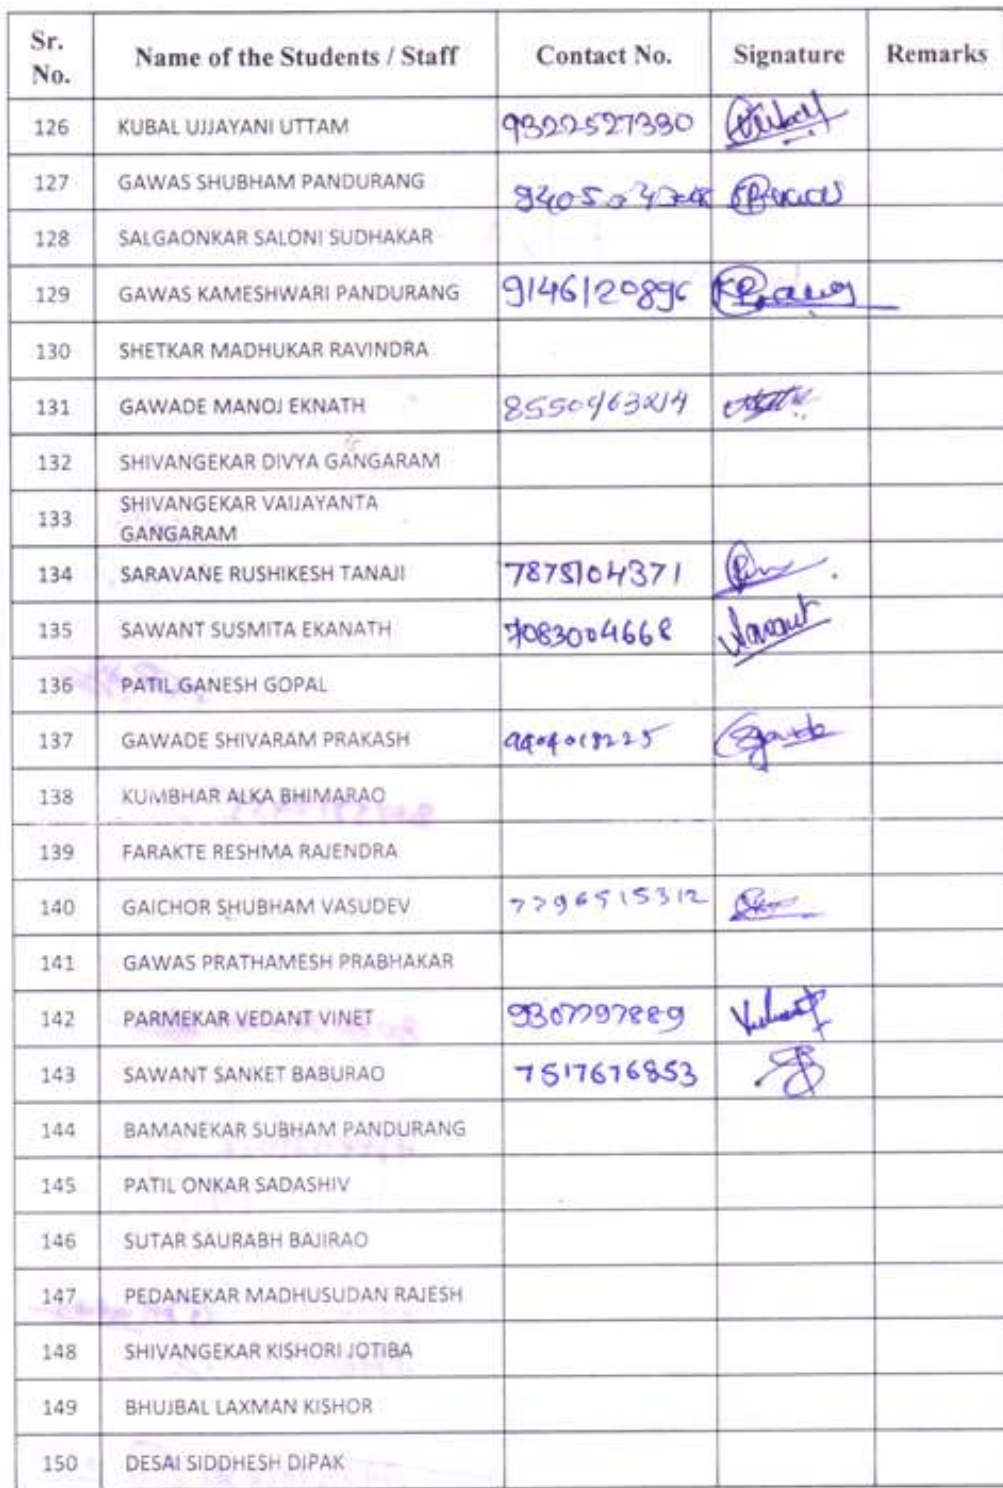 Sr. No. Name of the Students / Staff Contact No. Signature Remarks
126 KUBAL UJJAYANI UTTAM 9322527330
127 GAWAS SHUBHAM PANDURANG
128 SALGAONKAR SALONI SUDHAKAR
129 GAWAS KAMESHWARI PANDURANG 9146120896
130 SHETKAR MADHUKAR RAVINDRA
131 GAWADE MANOJ EKNATH
132 SHIVANGEKAR DIVYA GANGARAM
133 SHIVANGEKAR VAIJAYANTA
GANGARAM
134 SARAVANE RUSHIKESH TANAJI 7875104371
135 SAWANT SUSMITA EKANATH 7083004668 Sawant
136 PATIL GANESH GOPAL
137 GAWADE SHIVARAM PRAKASH
138 KUMBHAR ALKA BHIMARAO
139 FARAKTE RESHMA RAJENDRA
140 GAICHOR SHUBHAM VASUDEV 7796515312
141 GAWAS PRATHAMESH PRABHAKAR
142 PARMEKAR VEDANT VINET 9307797889
143 SAWANT SANKET BABURAO 7517676853
144 BAMANEKAR SUBHAM PANDURANG
145 PATIL ONKAR SADASHIV
146 SUTAR SAURABH BAJIRAO
147 PEDANEKAR MADHUSUDAN RAJESH
148 SHIVANGEKAR KISHORI JOTIBA
149 BHUJBAL LAXMAN KISHOR
150 DESAI SIDDHESH DIPAK